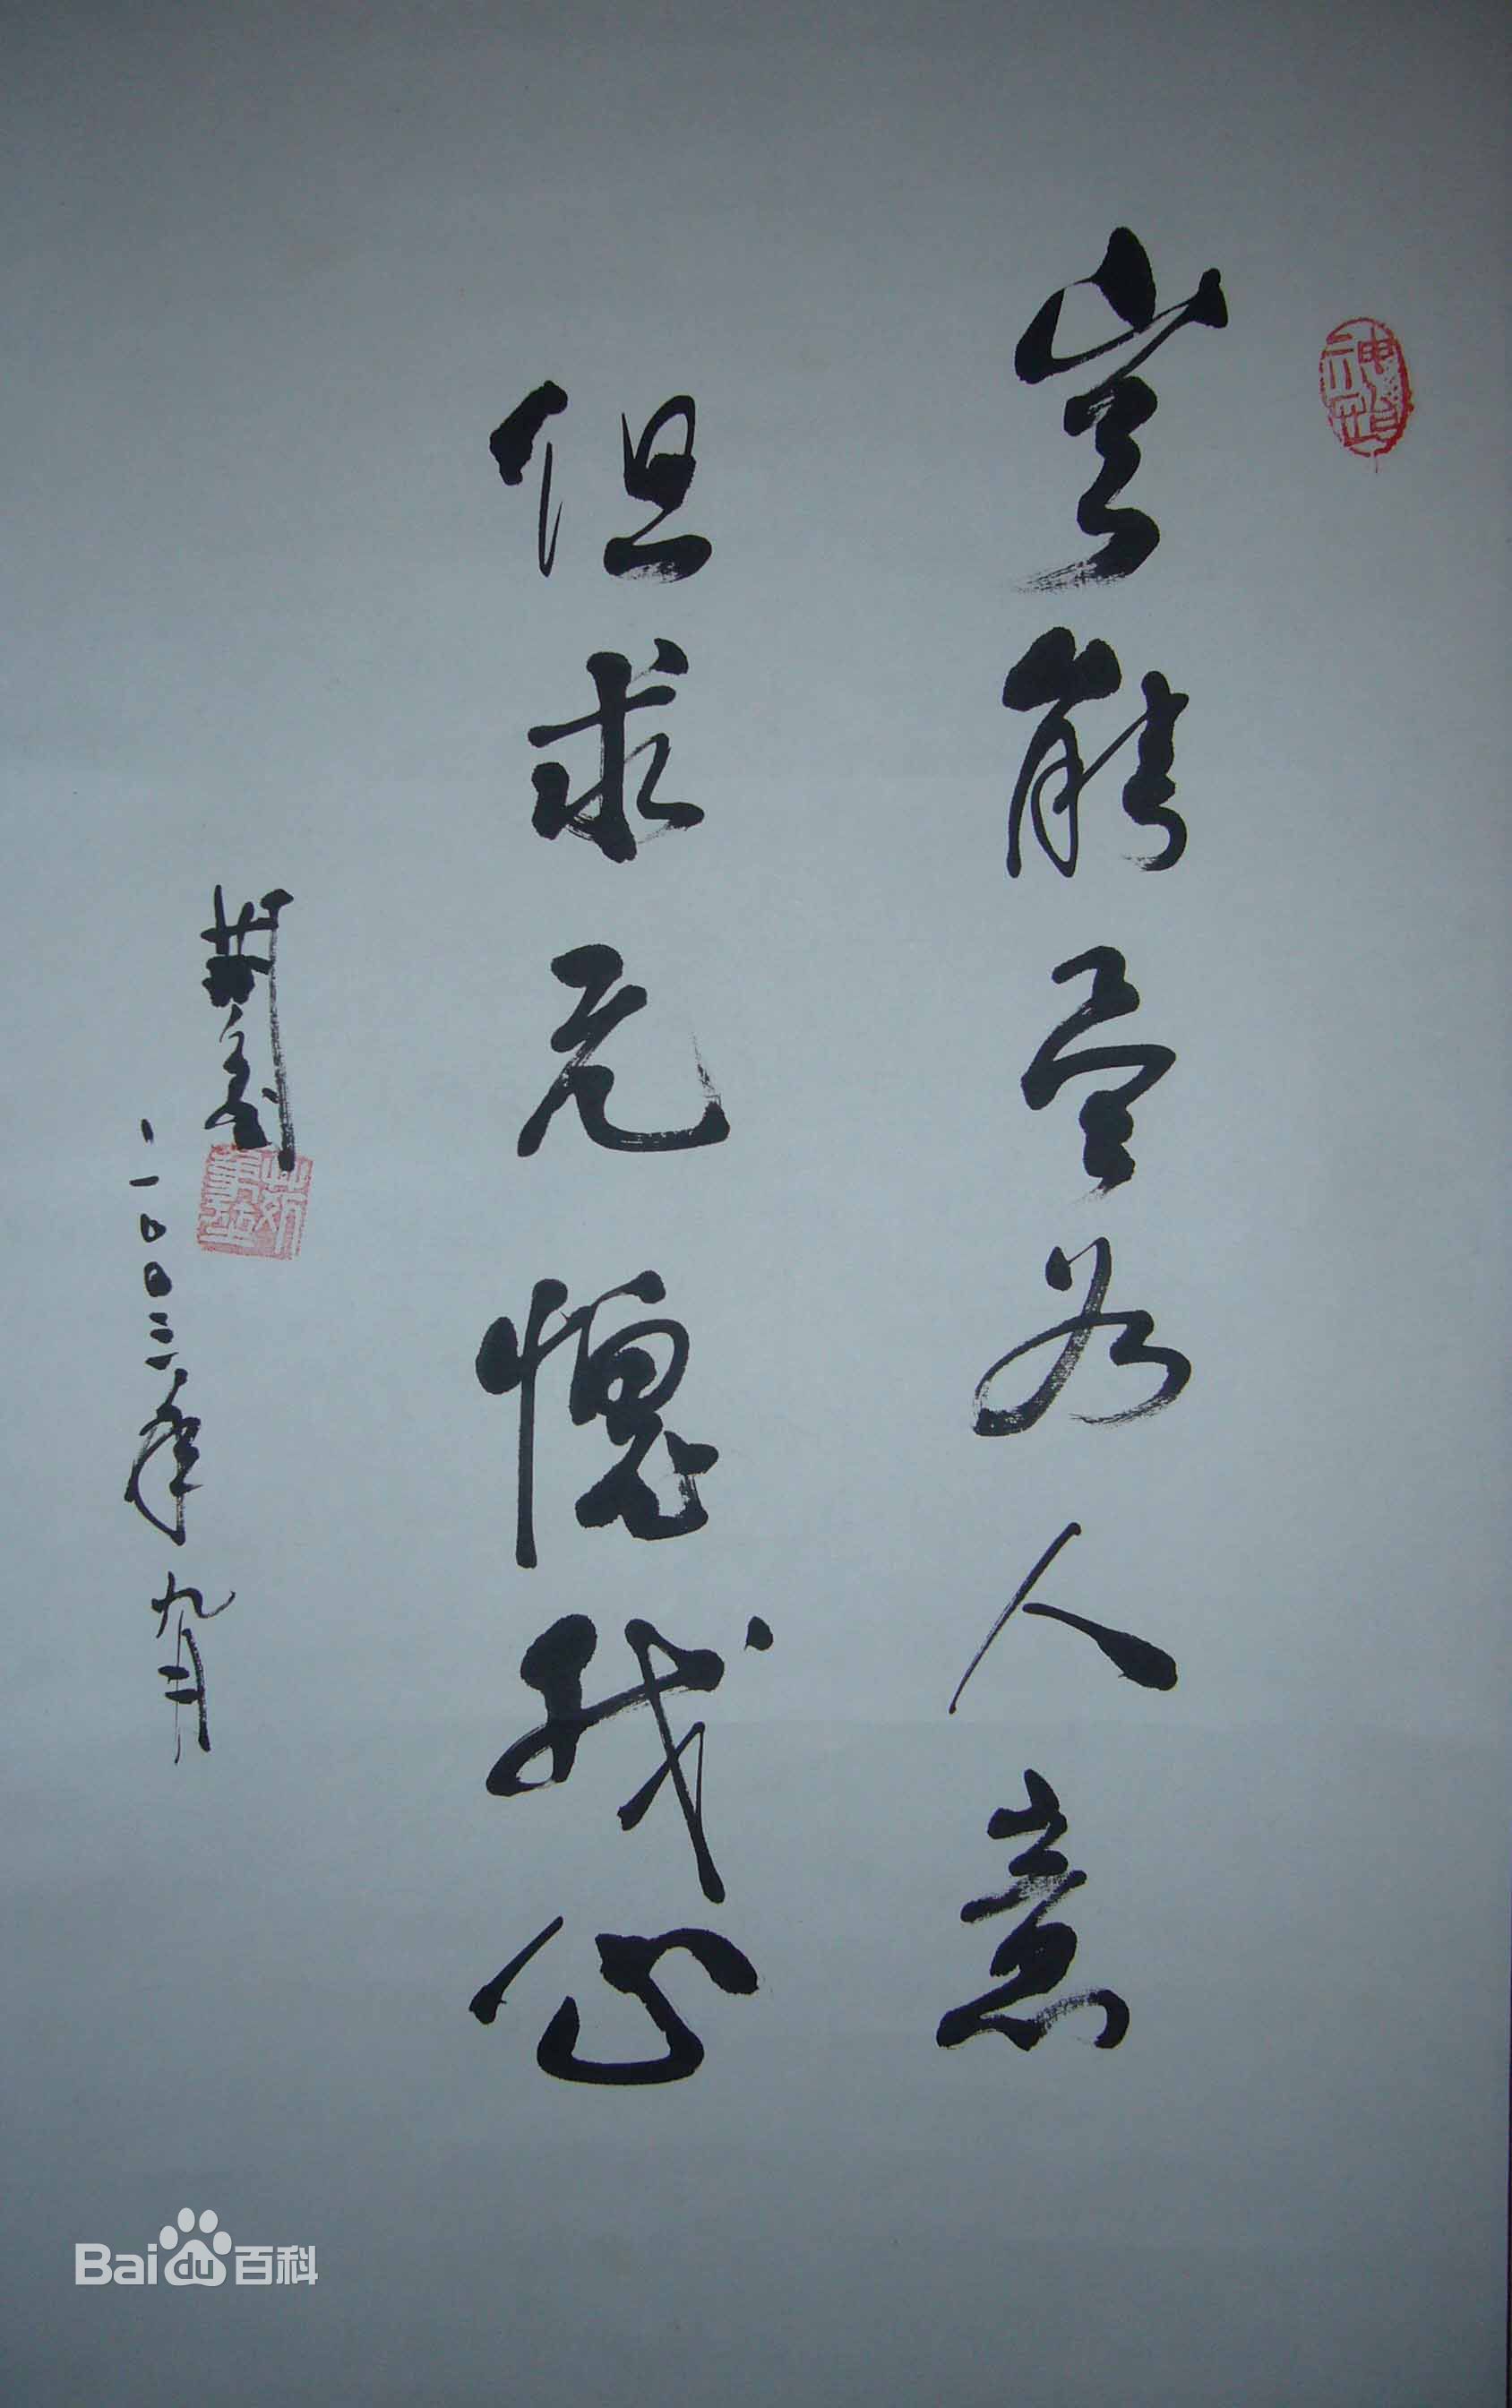 豈能尽如人意
但求无愧我心
二〇〇三年九月
Baidu百科